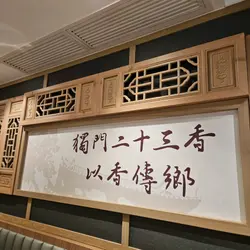 獨門二十三香
以香傳鄉